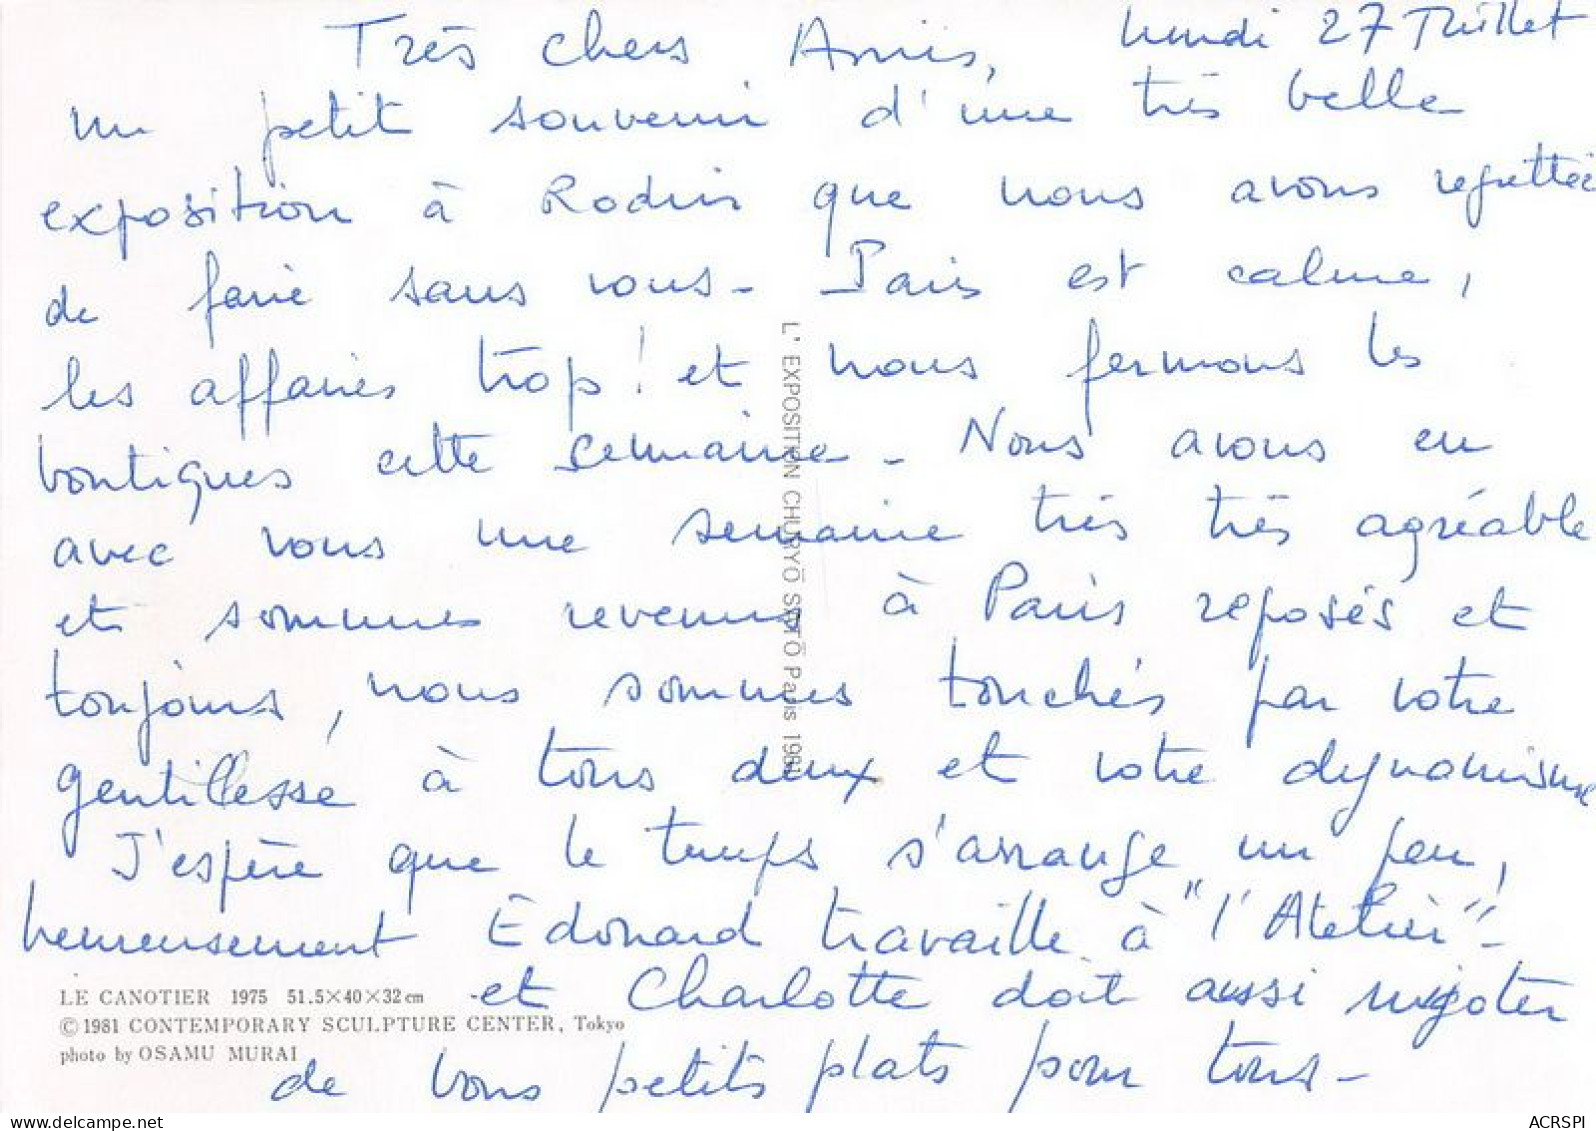 lundi 27 Juillet
Très chers Amis,
un petit souvenir d'une très belle
exposition à Rodin que nous avons regrettée
de faire sans vous - Paris est calme,
les affaires trop ! et nous fermons les
boutiques cette semaine - Nous avons eu
avec vous une semaine très très agréable
et sommes revenus à Paris reposés et
toujours, nous sommes touchés par votre
gentillesse à tous deux et votre dynamisme
J'espère que le temps s'arrange un peu,
heureusement Edouard travaille à "l'Atelier" -
et Charlotte doit aussi mijoter
de bons petits plats pour tous -
L'EXPOSITION CHURYŌ SATŌ Paris 1981
LE CANOTIER 1975 51.5×40×32cm
©1981 CONTEMPORARY SCULPTURE CENTER, Tokyo
photo by OSAMU MURAI
www.delcampe.net
ACRSPI